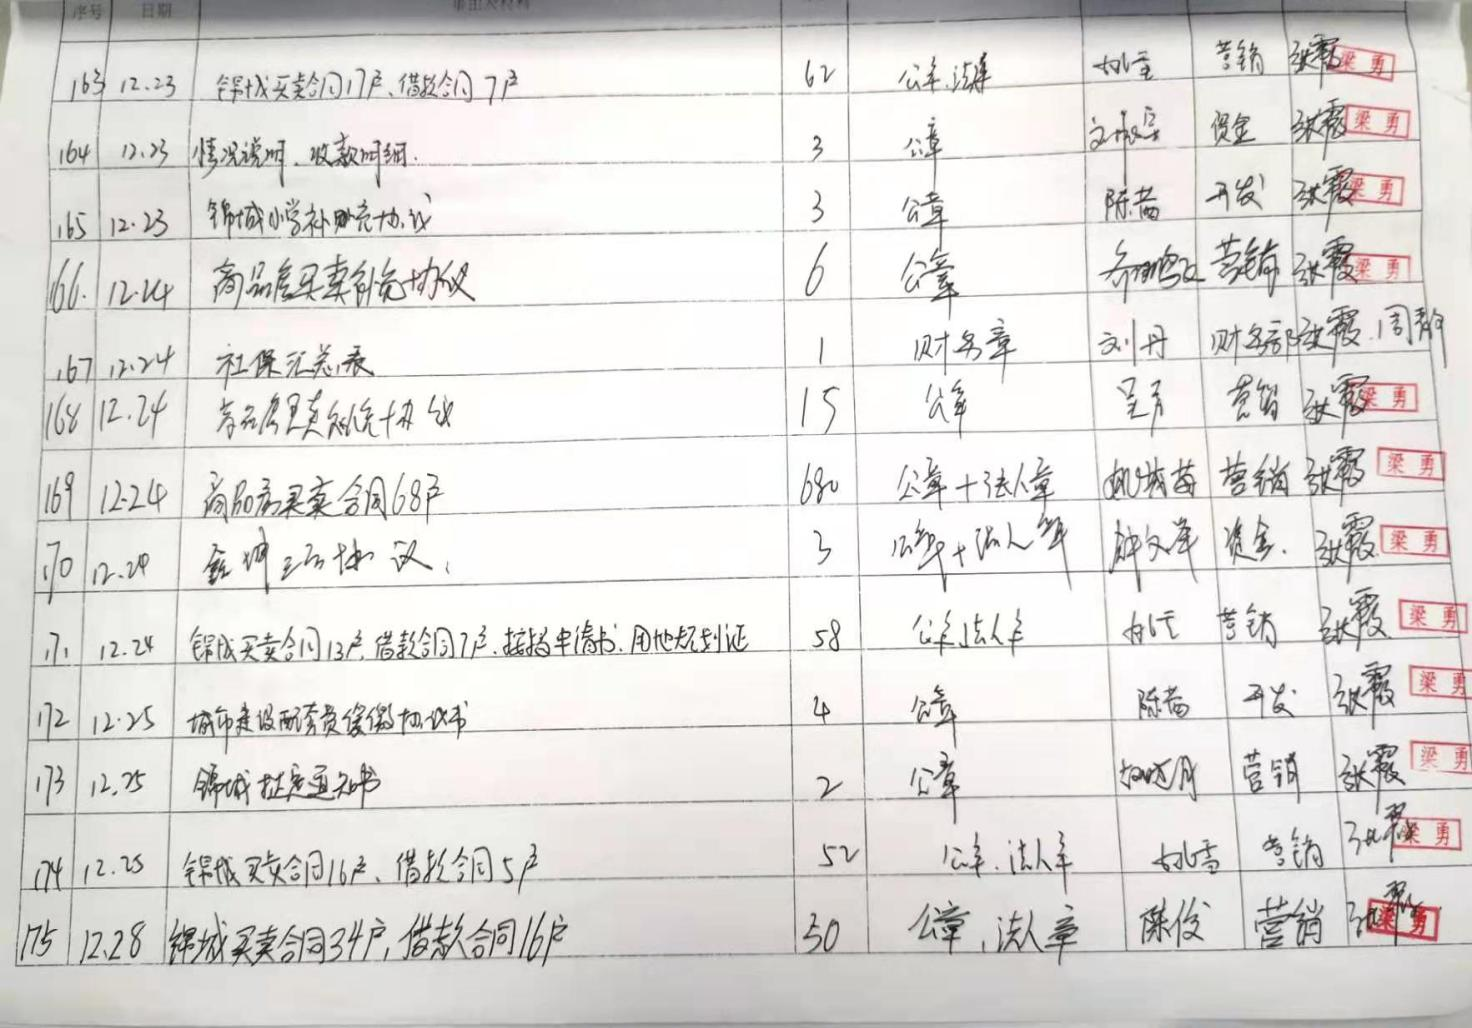 序号 日期
163 12.23 锦城买卖合同17户、借款合同7户 62 公章、法章 营销 张霞 梁勇
164 12.23 情况说明、收款明细. 3 公章 资金 张霞 梁勇
165 12.23 锦城小学补充协议 3 公章 陈茜 开发 张霞 梁勇
166. 12.24 商品房买卖补充协议 6 公章 营销 张霞 梁勇
167 12.24 社保汇总表 1 财务章 刘丹 财务部 张霞、周静
168 12.24 商品房买卖补充协议 15 公章 营销 张霞 梁勇
169 12.24 商品房买卖合同68户 680 公章+法人章 营销 张霞 梁勇
170 12.24 协议 3 公章+法人章 资金. 张霞 梁勇
171 12.24 锦城买卖合同13户、借款合同7户、申请书、用地规划证 58 公章、法人章 营销 张霞 梁勇
172 12.25 城市建设配套费缓缴协议书 4 公章 陈茜 开发 张霞 梁勇
173 12.25 锦城 通知书 2 公章 营销 张霞 梁勇
174 12.25 锦城买卖合同16户、借款合同5户 52 公章、法人章 营销 张霞 梁勇
175 12.28 锦城买卖合同34户, 借款合同16户 50 公章, 法人章 陈俊 营销 张霞 梁勇